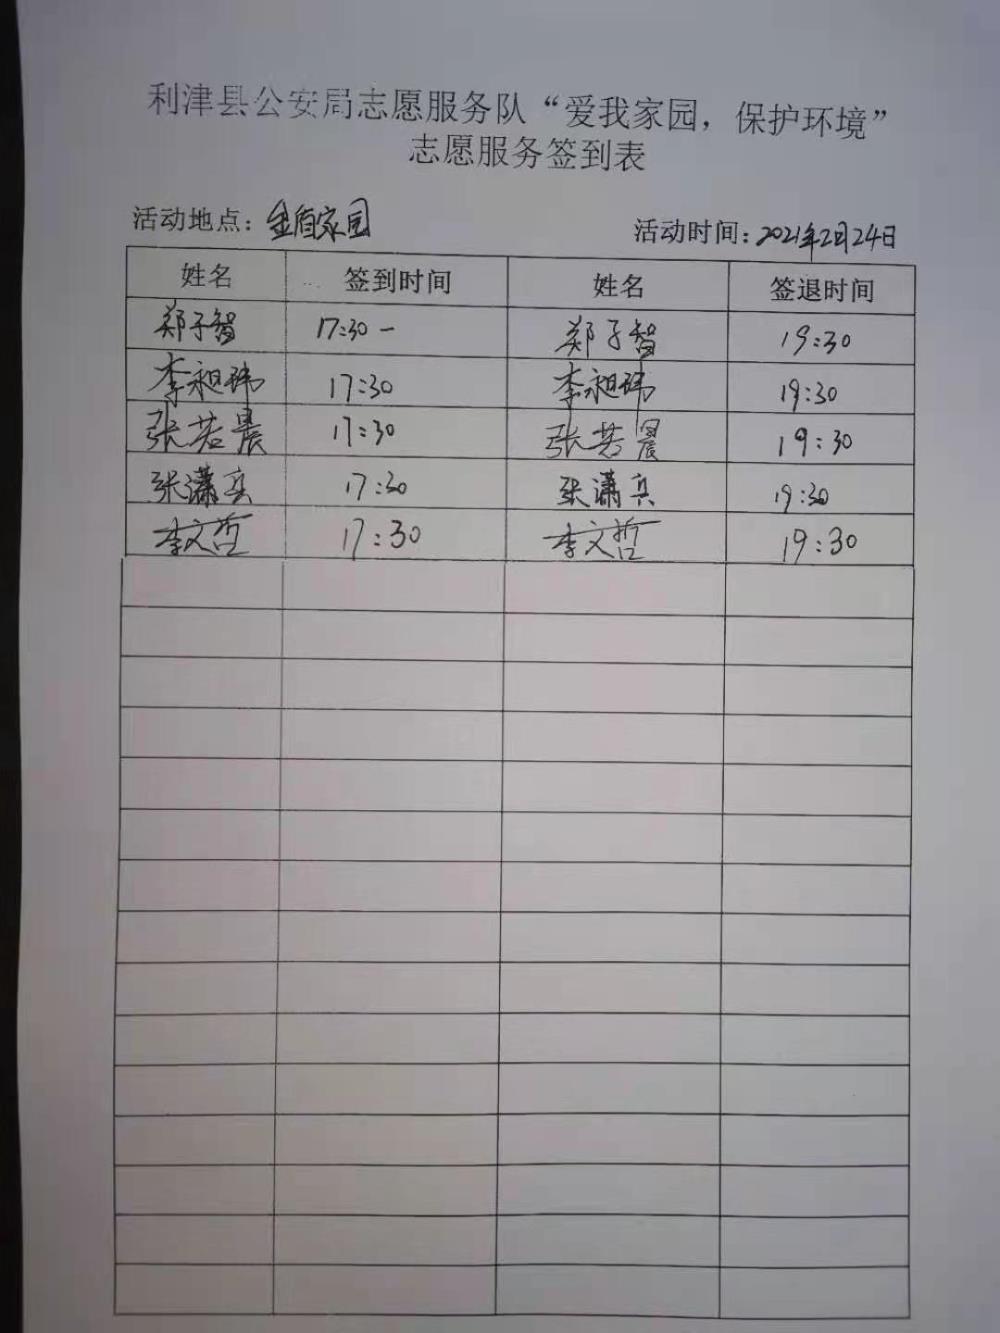 利津县公安局志愿服务队“爱我家园，保护环境”
志愿服务签到表
活动地点：金盾家园 活动时间：2021年2月24日
姓名 签到时间 姓名 签退时间
郑子智 17:30- 郑子智 19:30
李昶玮 17:30 李昶玮 19:30
张若晨 17:30 张若晨 19:30
张潇兵 17:30 张潇兵 19:30
李文哲 17:30 李文哲 19:30